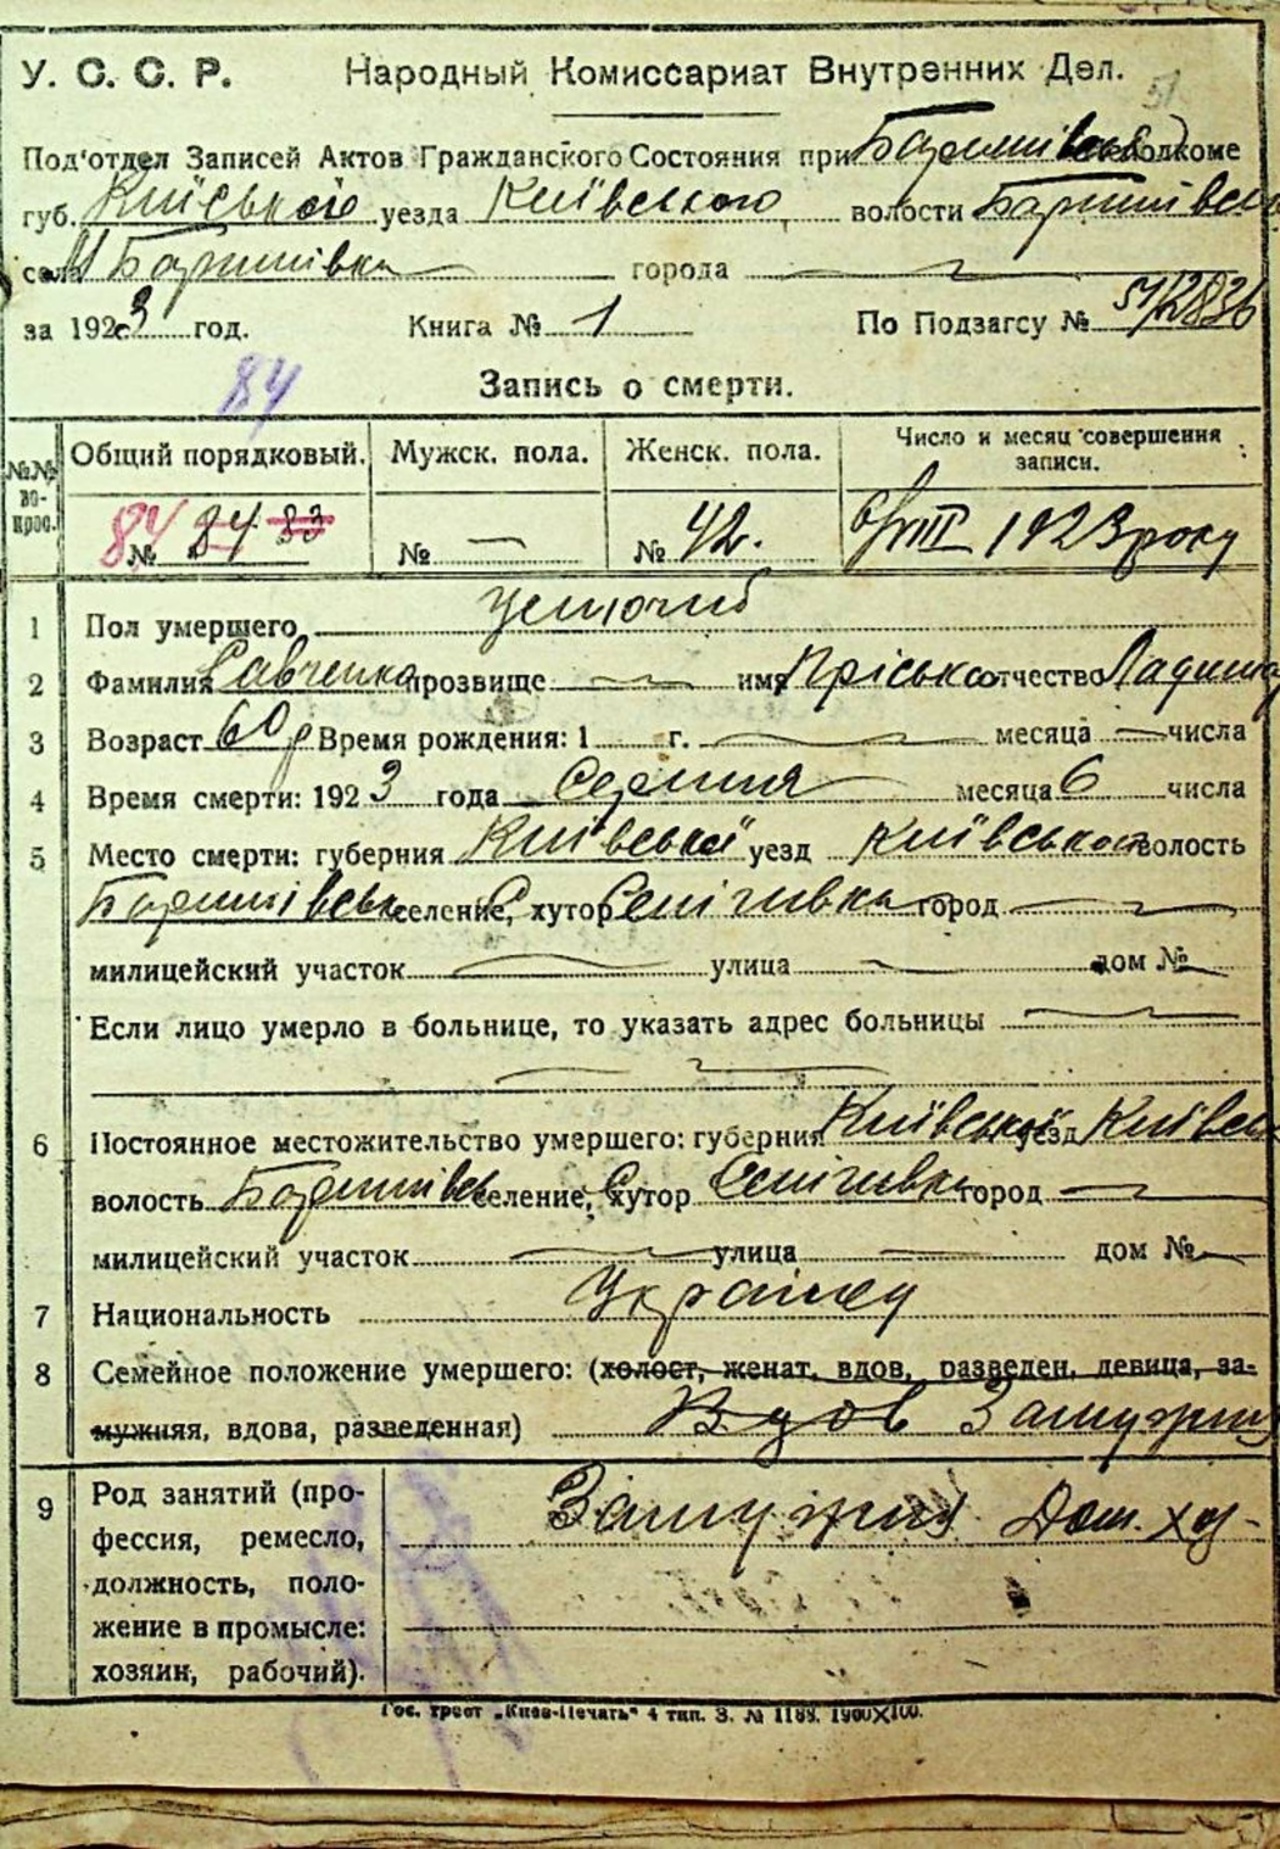 У. С. С. Р. Народный Комиссариат Внутренних Дел.
51
Под'отдел Записей Актов Гражданского Состояния при Баришівськ волкоме
губ. Київської уезда Київского волости Баришівськ
села М Баришівка города —
за 1923 год. Книга № 1 По Подзагсу № 51/2836
84
Запись о смерти.
№№ во-прос. Общий порядковый. Мужск. пола. Женск. пола. Число и месяц совершения записи.
84 № 84 84 83 № — № 42. 6/VIII 1923 року
1 Пол умершего жіночиб
2 Фамилия Савченко прозвище — имя Пріська отчество
3 Возраст 60 р Время рождения: 1 г. — месяца — числа
4 Время смерти: 1923 года Серпня месяца 6 числа
5 Место смерти: губерния Київської уезд Київського волость
Баришівськ селение, хутор С Селічивка город —
милицейский участок — улица — дом № —
Если лицо умерло в больнице, то указать адрес больницы —
—
6 Постоянное местожительство умершего: губерния Київської уезд Київськ
волость Баришівськ селение, хутор С Селічивка город —
милицейский участок — улица — дом № —
7 Национальность Українец
8 Семейное положение умершего: (холост, женат, вдов, разведен, девица, за-
мужняя, вдова, разведенная) Вдов Замужня
9 Род занятий (про- Замужня Дом. хоз-
фессия, ремесло,
должность, поло-
жение в промысле:
хозяин, рабочий).
Гос. трест „Киев-Печать" 4 тип. З. № 1188. 1900Х100.